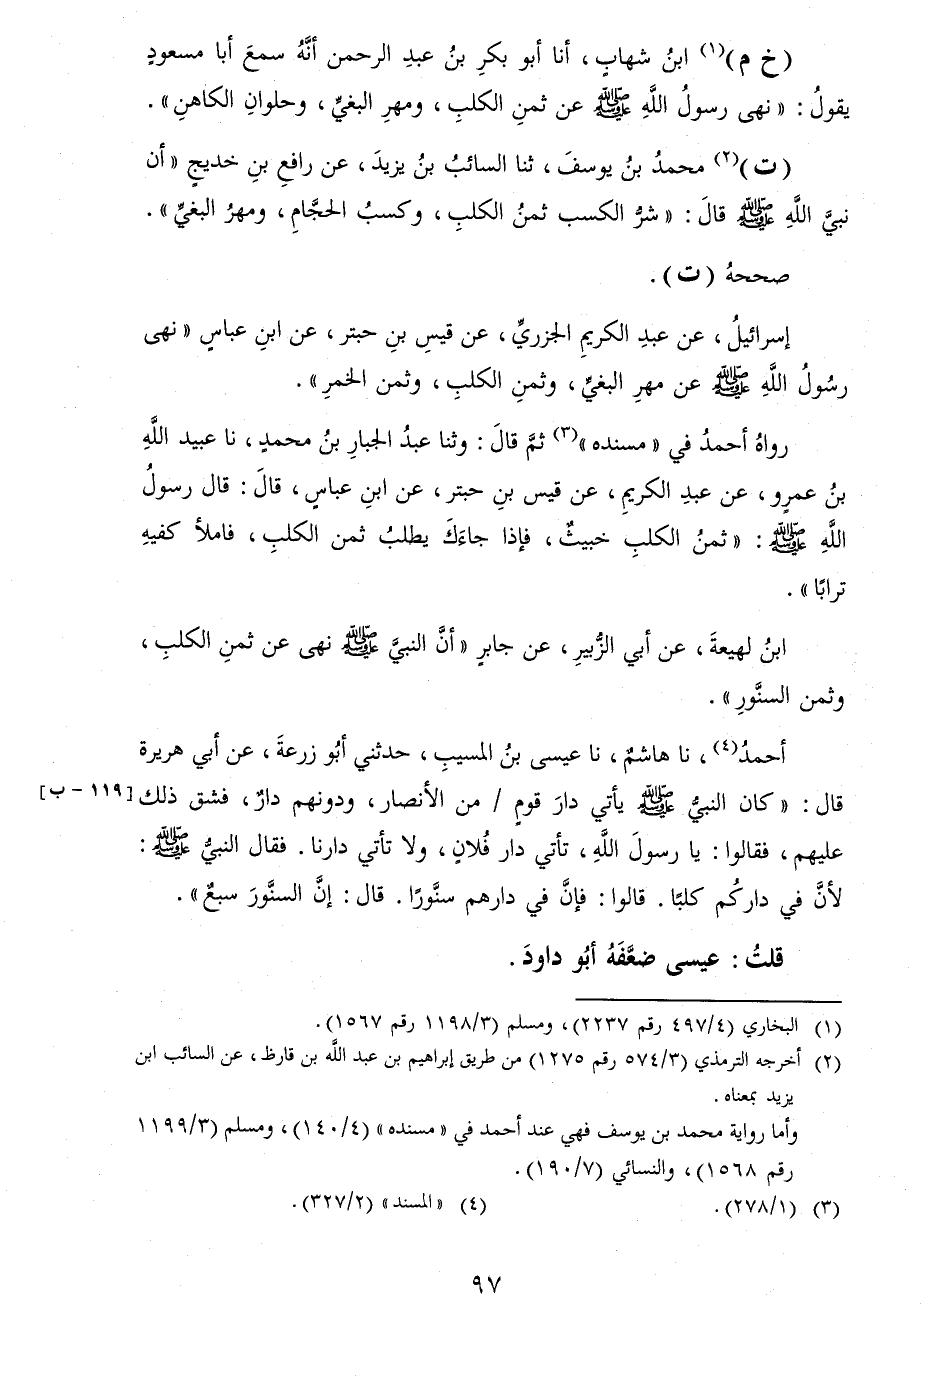 (خ م)(١) ابنُ شهابٍ، أنا أبو بكرِ بنُ عبدِ الرحمن أنَّهُ سمعَ أبا مسعودٍ
يقولُ : « نهى رسولُ اللَّهِ ﷺ عن ثمنِ الكلبِ، ومهرِ البغيِّ، وحلوانِ الكاهنِ» .
(ت)(٢) محمدُ بنُ يوسفَ، ثنا السائبُ بنُ يزيدَ، عن رافعِ بنِ خديجٍ «أن
نبيَّ اللَّهِ ﷺ قالَ : « شرُّ الكسب ثمنُ الكلبِ، وكسبُ الحجَّامِ، ومهرُ البغيِّ» .
صححهُ (ت) .
إسرائيلُ، عن عبدِ الكريمِ الجزريِّ، عن قيسِ بنِ حبتر، عن ابنِ عباسٍ «نهى
رسُولُ اللَّهِ ﷺ عن مهرِ البغيِّ، وثمنِ الكلبِ، وثمن الخمرِ» .
رواهُ أحمدُ في « مسنده»(٣) ثمَّ قالَ : وثنا عبدُ الجبارِ بنُ محمدٍ، نا عبيد اللَّهِ
بنُ عمرٍو، عن عبدِ الكريمِ، عن قيس بنِ حبتر، عن ابنِ عباسٍ، قالَ : قال رسولُ
اللَّهِ ﷺ : « ثمنُ الكلبِ خبيثٌ، فإذا جاءَكَ يطلبُ ثمن الكلبِ، فاملأ كفيهِ
ترابًا» .
ابنُ لهيعةَ، عن أبي الزُّبيرِ، عن جابرٍ «أنَّ النبيَّ ﷺ نهى عن ثمنِ الكلبِ،
وثمن السنَّورِ» .
أحمدُ(٤)، نا هاشمٌ، نا عيسى بنُ المسيبِ، حدثني أبُو زرعةَ، عن أبي هريرة
قال : « كان النبيُّ ﷺ يأتي دارَ قومٍ / من الأنصار، ودونهم دارٌ، فشق ذلك [١١٩ - ب]
عليهم، فقالوا : يا رسولَ اللَّهِ، تأتي دار فُلانٍ، ولا تأتي دارنا. فقال النبيُّ ﷺ :
لأنَّ في داركُم كلبًا. قالوا : فإنَّ في دارهم سنَّورًا. قال : إنَّ السنَّورَ سبعٌ» .
قلتُ : عيسى ضعَّفَهُ أبُو داودَ .
(١) البخاري (٤٩٧/٤ رقم ٢٢٣٧)، ومسلم (١١٩٨/٣ رقم ١٥٦٧).
(٢) أخرجه الترمذي (٥٧٤/٣ رقم ١٢٧٥) من طريق إبراهيم بن عبد اللَّه بن قارظ، عن السائب ابن
يزيد بمعناه .
وأما رواية محمد بن يوسف فهي عند أحمد في « مسنده» (١٤٠/٤)، ومسلم (١١٩٩/٣
رقم ١٥٦٨)، والنسائي (١٩٠/٧).
(٣) (٢٧٨/١). (٤) «المسند» (٣٢٧/٢).
٩٧